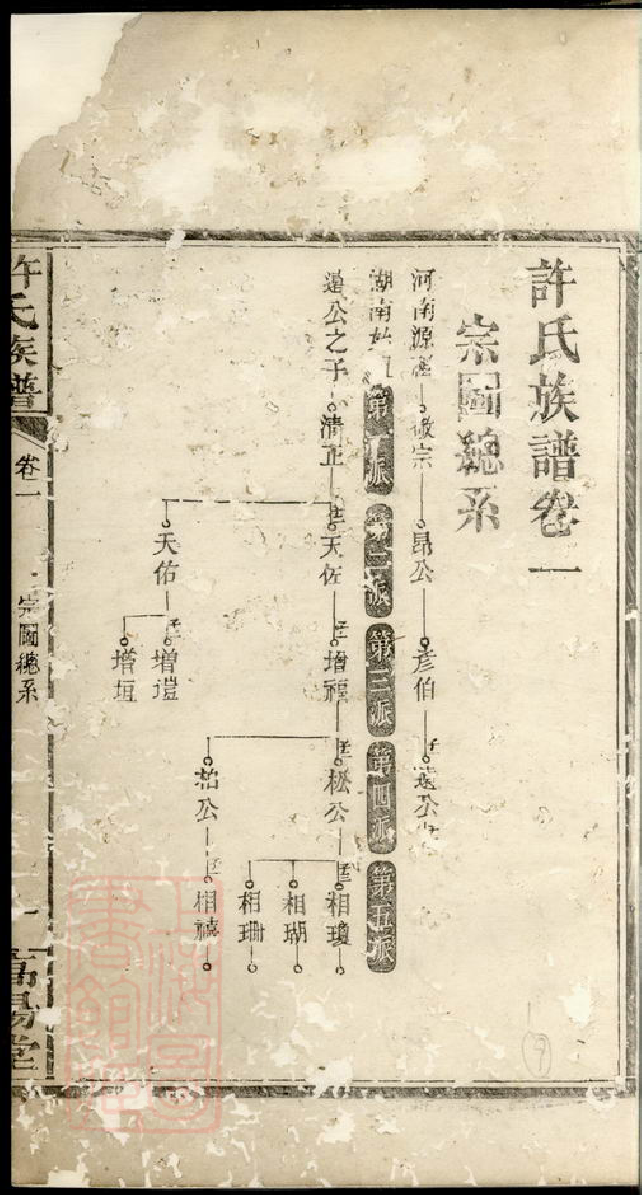 許氏族譜卷一
宗圖總系
河南源 宗 昂公 彥伯 公
湖南始 第一派 第二派 第三派 第四派 第五派
公之子 清正 天佐 增禧 松公 相瓊
相瑚
相珊
柏公 相禧
天佑 增塏
增垣
許氏族譜 卷一 宗圖總系 一 高陽堂